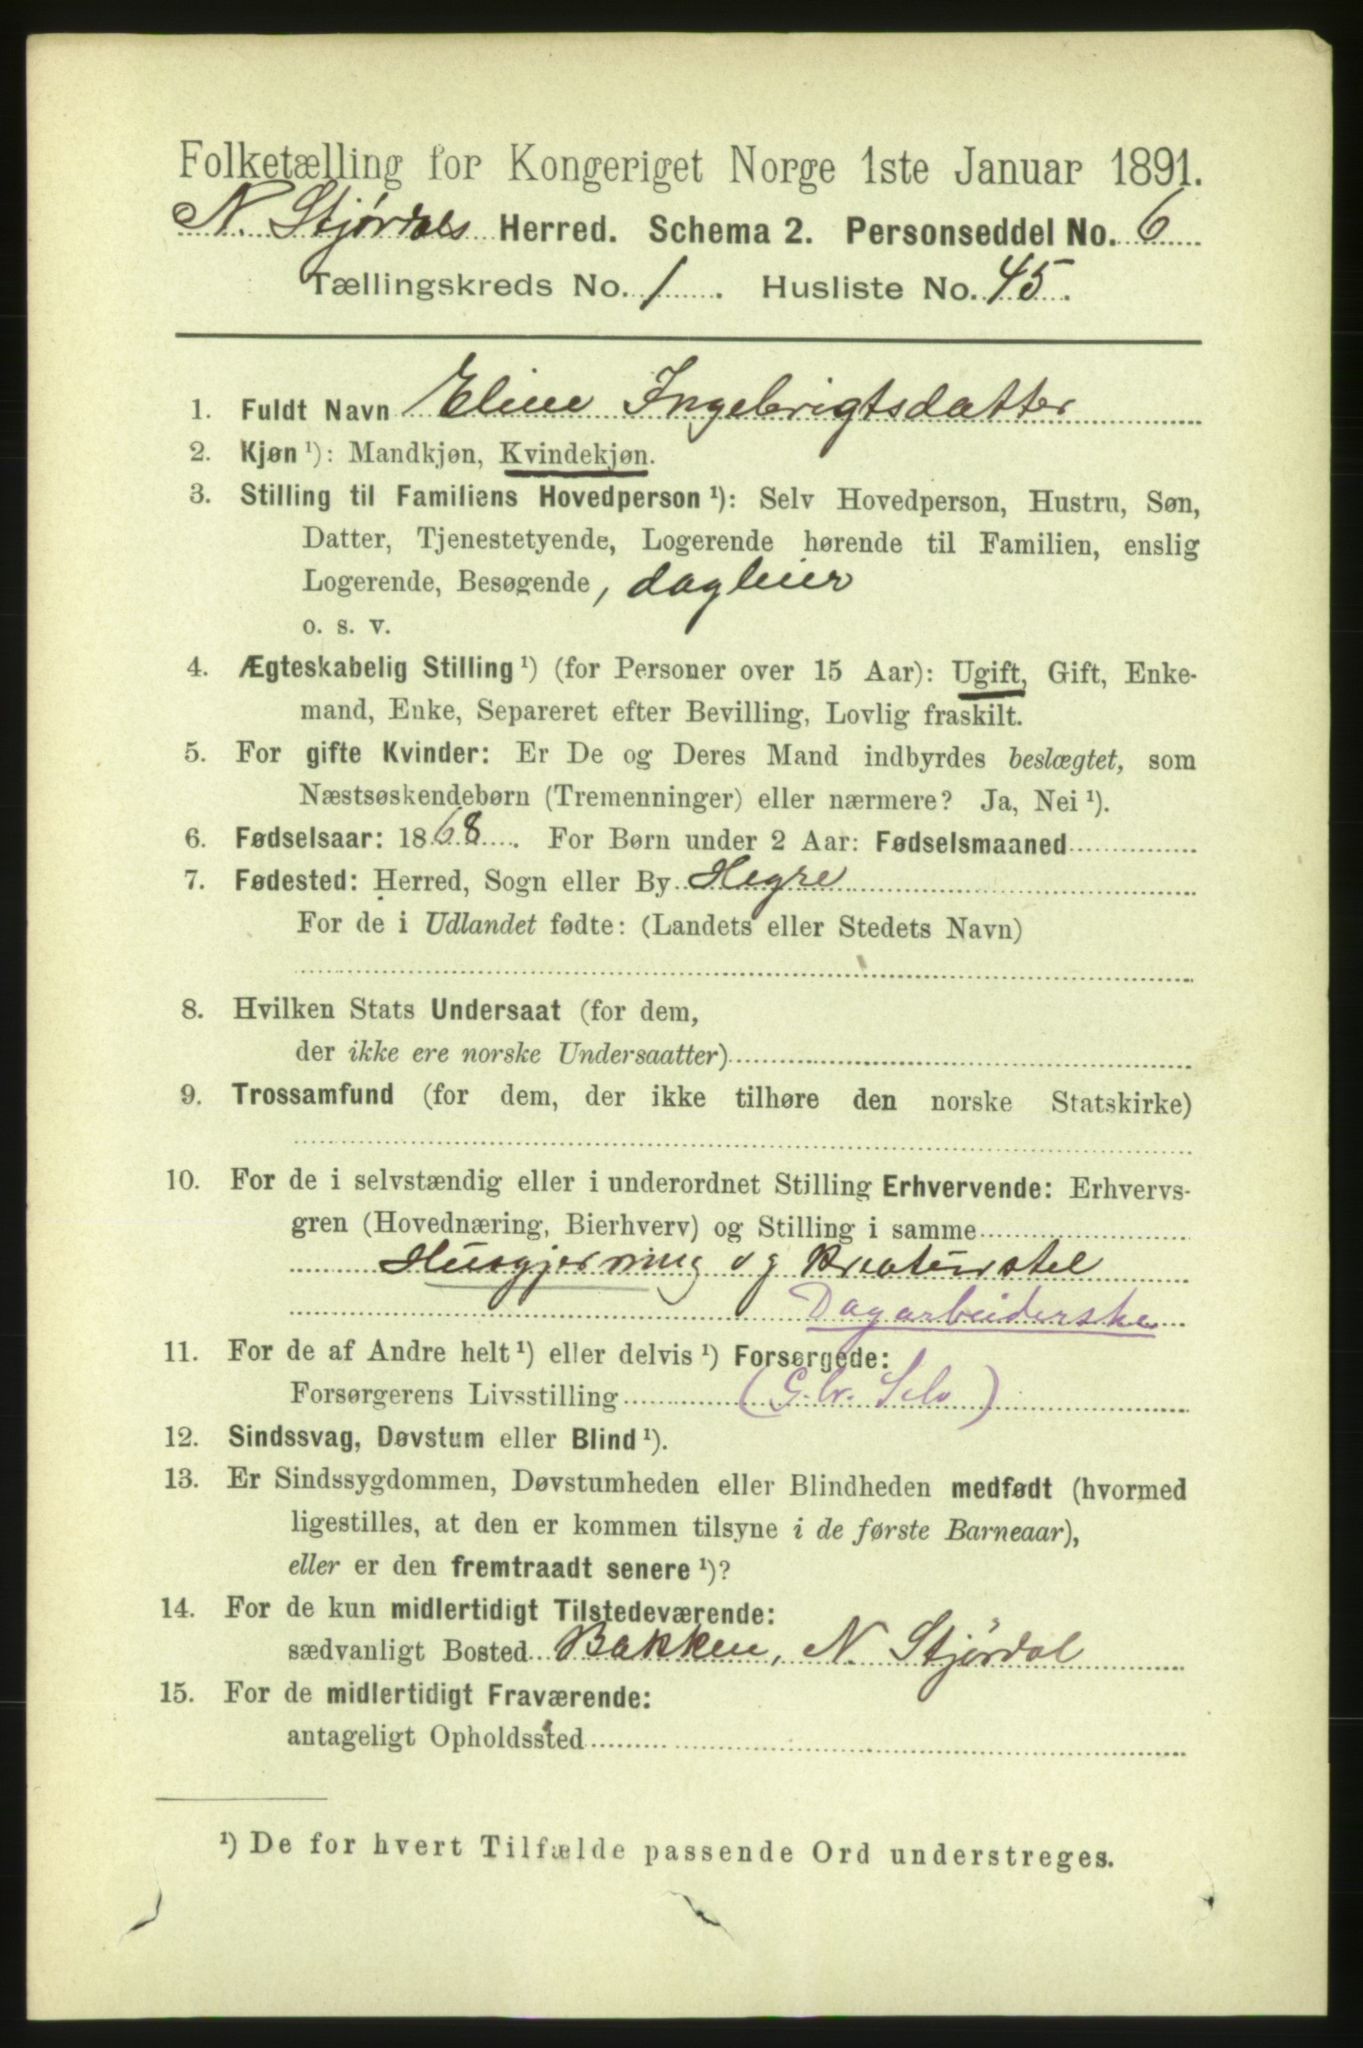 Folketælling for Kongeriget Norge 1ste Januar 1891.
N. Stjørdals Herred. Schema 2. Personseddel No. 6
Tællingskreds No. 1. Husliste No. 45.
1. Fuldt Navn Eline Ingebrigtsdatter
2. Kjøn ¹): Mandkjøn, Kvindekjøn.
3. Stilling til Familiens Hovedperson ¹): Selv Hovedperson, Hustru, Søn,
Datter, Tjenestetyende, Logerende hørende til Familien, enslig
Logerende, Besøgende, dagleier
o. s. v.
4. Ægteskabelig Stilling ¹) (for Personer over 15 Aar): Ugift, Gift, Enke-
mand, Enke, Separeret efter Bevilling, Lovlig fraskilt.
5. For gifte Kvinder: Er De og Deres Mand indbyrdes beslægtet, som
Næstsøskendebørn (Tremenninger) eller nærmere? Ja, Nei ¹).
6. Fødselsaar: 1868. For Børn under 2 Aar: Fødselsmaaned
7. Fødested: Herred, Sogn eller By Hegre
For de i Udlandet fødte: (Landets eller Stedets Navn)
8. Hvilken Stats Undersaat (for dem,
der ikke ere norske Undersaatter)
9. Trossamfund (for dem, der ikke tilhøre den norske Statskirke)
10. For de i selvstændig eller i underordnet Stilling Erhvervende: Erhvervs-
gren (Hovednæring, Bierhverv) og Stilling i samme
Husgjerning og Kreaturstel
Dagarbeiderske
11. For de af Andre helt ¹) eller delvis ¹) Forsørgede:
Forsørgerens Livsstilling (G.br. Selv)
12. Sindssvag, Døvstum eller Blind ¹).
13. Er Sindssygdommen, Døvstumheden eller Blindheden medfødt (hvormed
ligestilles, at den er kommen tilsyne i de første Barneaar),
eller er den fremtraadt senere ¹)?
14. For de kun midlertidigt Tilstedeværende:
sædvanligt Bosted Bakken, N. Stjørdal
15. For de midlertidigt Fraværende:
antageligt Opholdssted
¹) De for hvert Tilfælde passende Ord understreges.